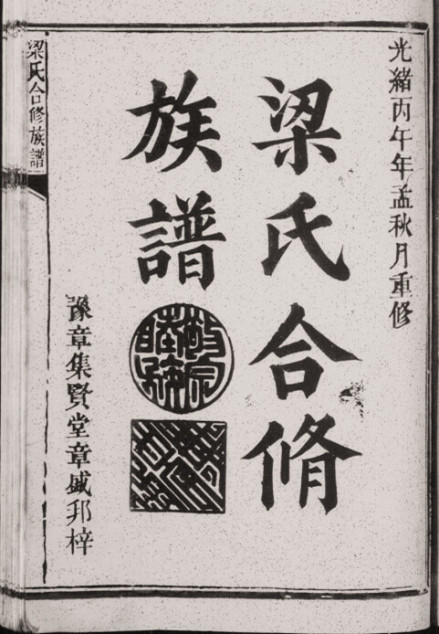 光緒丙午年孟秋月重修
梁氏合脩
族譜
敬宗睦族
豫章集賢堂章盛邦梓
梁氏合修族譜